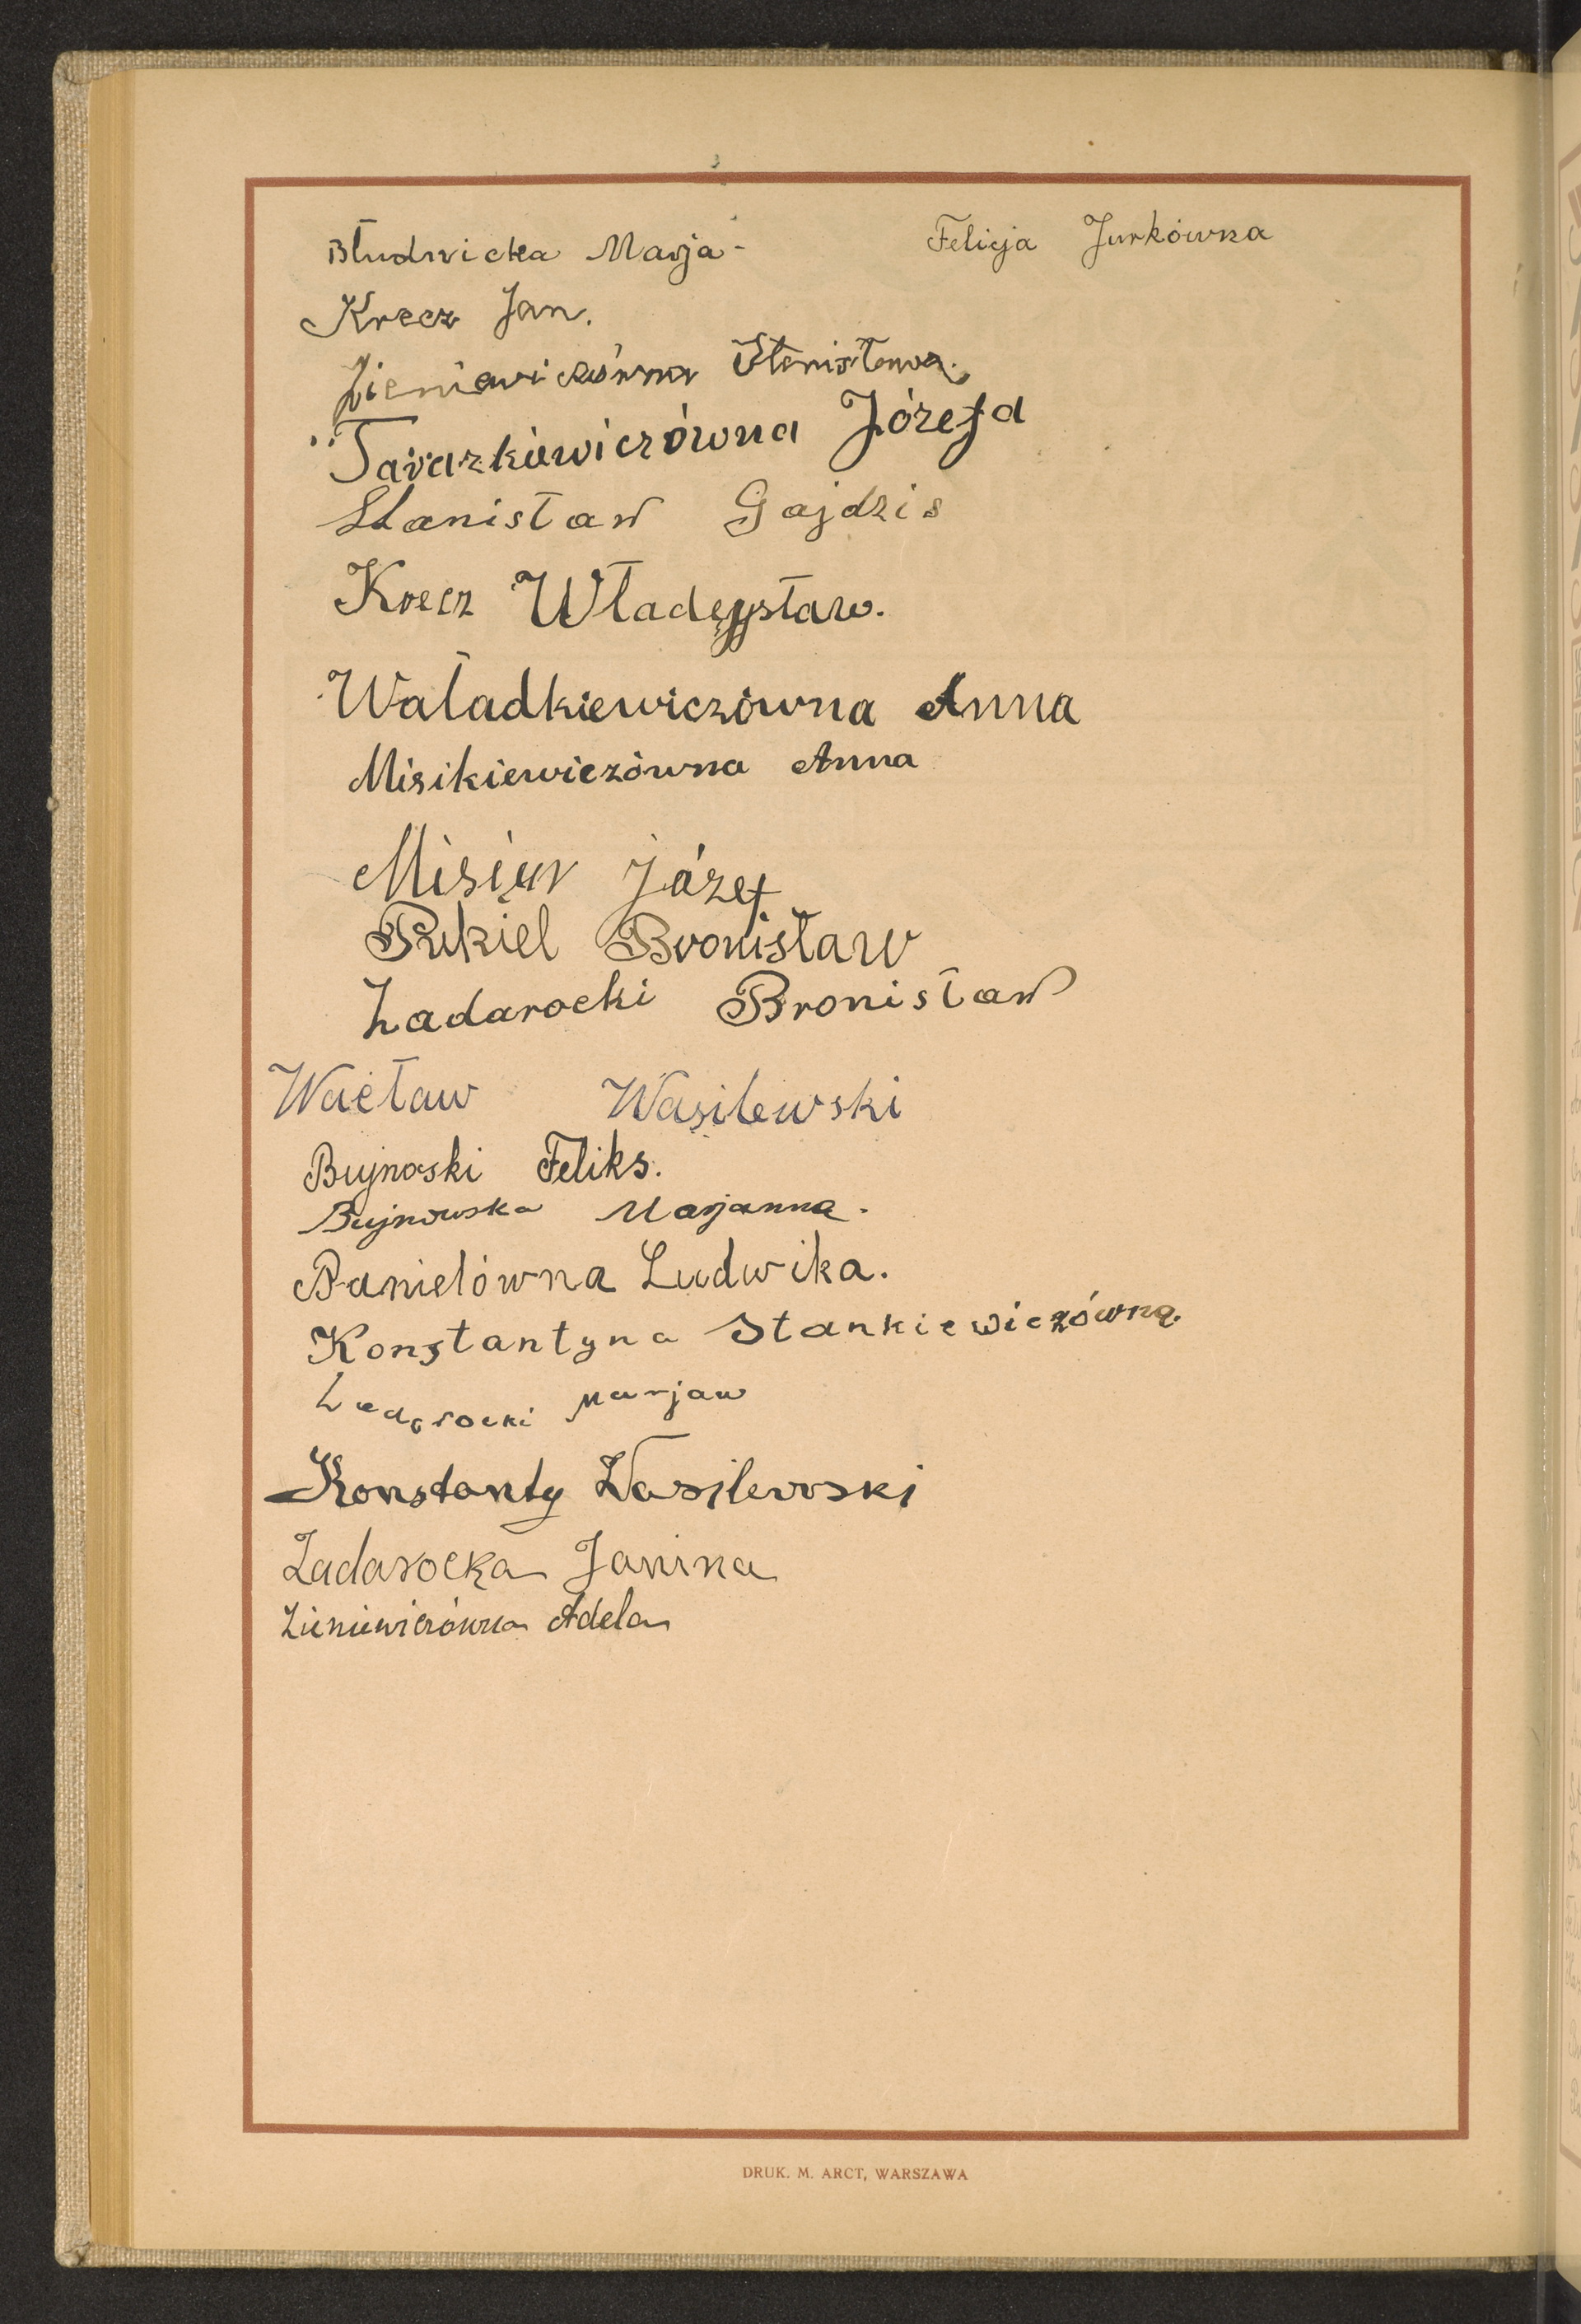 Błudnicka Marja
Felicja Jurkówna
Krecz Jan.
Zieniewiczówna Stanisława.
Taraszkiewiczówna Józefa
Stanisław Gajdzis
Krecz Władysław.
Waładkiewiczówna Anna
Misikiewiczówna Anna
Misiur Józef
Rekiel Bronisław
Zadarocki Bronisław
Wacław Wasilewski
Bujnoski Feliks.
Bujnowska Marjanna.
Danielówna Ludwika.
Konstantyna Stankiewiczówna.
Zadarocki Marjan
Konstanty Wasilewski
Zadarocka Janina
Zieniewiczówna Adela
DRUK. M. ARCT, WARSZAWA